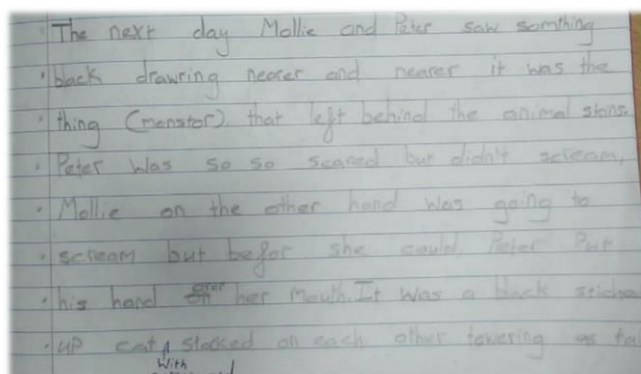 The next day Mollie and Peter saw somthing
black drawring nearer and nearer it was the
thing (monstor). that left behind the animal skins.
Peter was so so scared but didn't scream,
Mollie on the other hand was going to
scream but befor she could Peter Put
his hand over her mouth. It was a black
up cat stacked on each other towering as
With